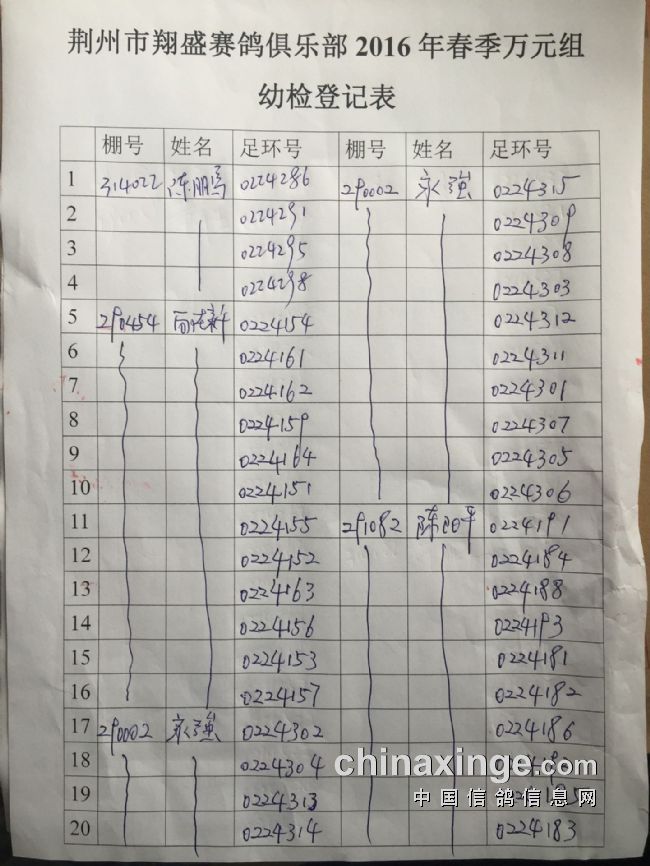 荆州市翔盛赛鸽俱乐部2016年春季万元组
幼检登记表
棚号 姓名 足环号 棚号 姓名 足环号
1 314022 陈鹏鸟 0224286 290002 永强 0224315
2 0224291 0224309
3 0224295 0224308
4 0224298 0224303
5 290454 0224154 0224312
6 0224161 0224311
7 0224162 0224301
8 0224159 0224307
9 0224164 0224305
10 0224151 0224306
11 0224155 291082 陈昭平 0224191
12 0224152 0224184
13 0224163 0224188
14 0224156 0224193
15 0224153 0224181
16 0224157 0224182
17 290002 永强 0224302 0224186
18 0224304
19 0224313
20 0224314 0224183
chinaxinge.com
中国信鸽信息网